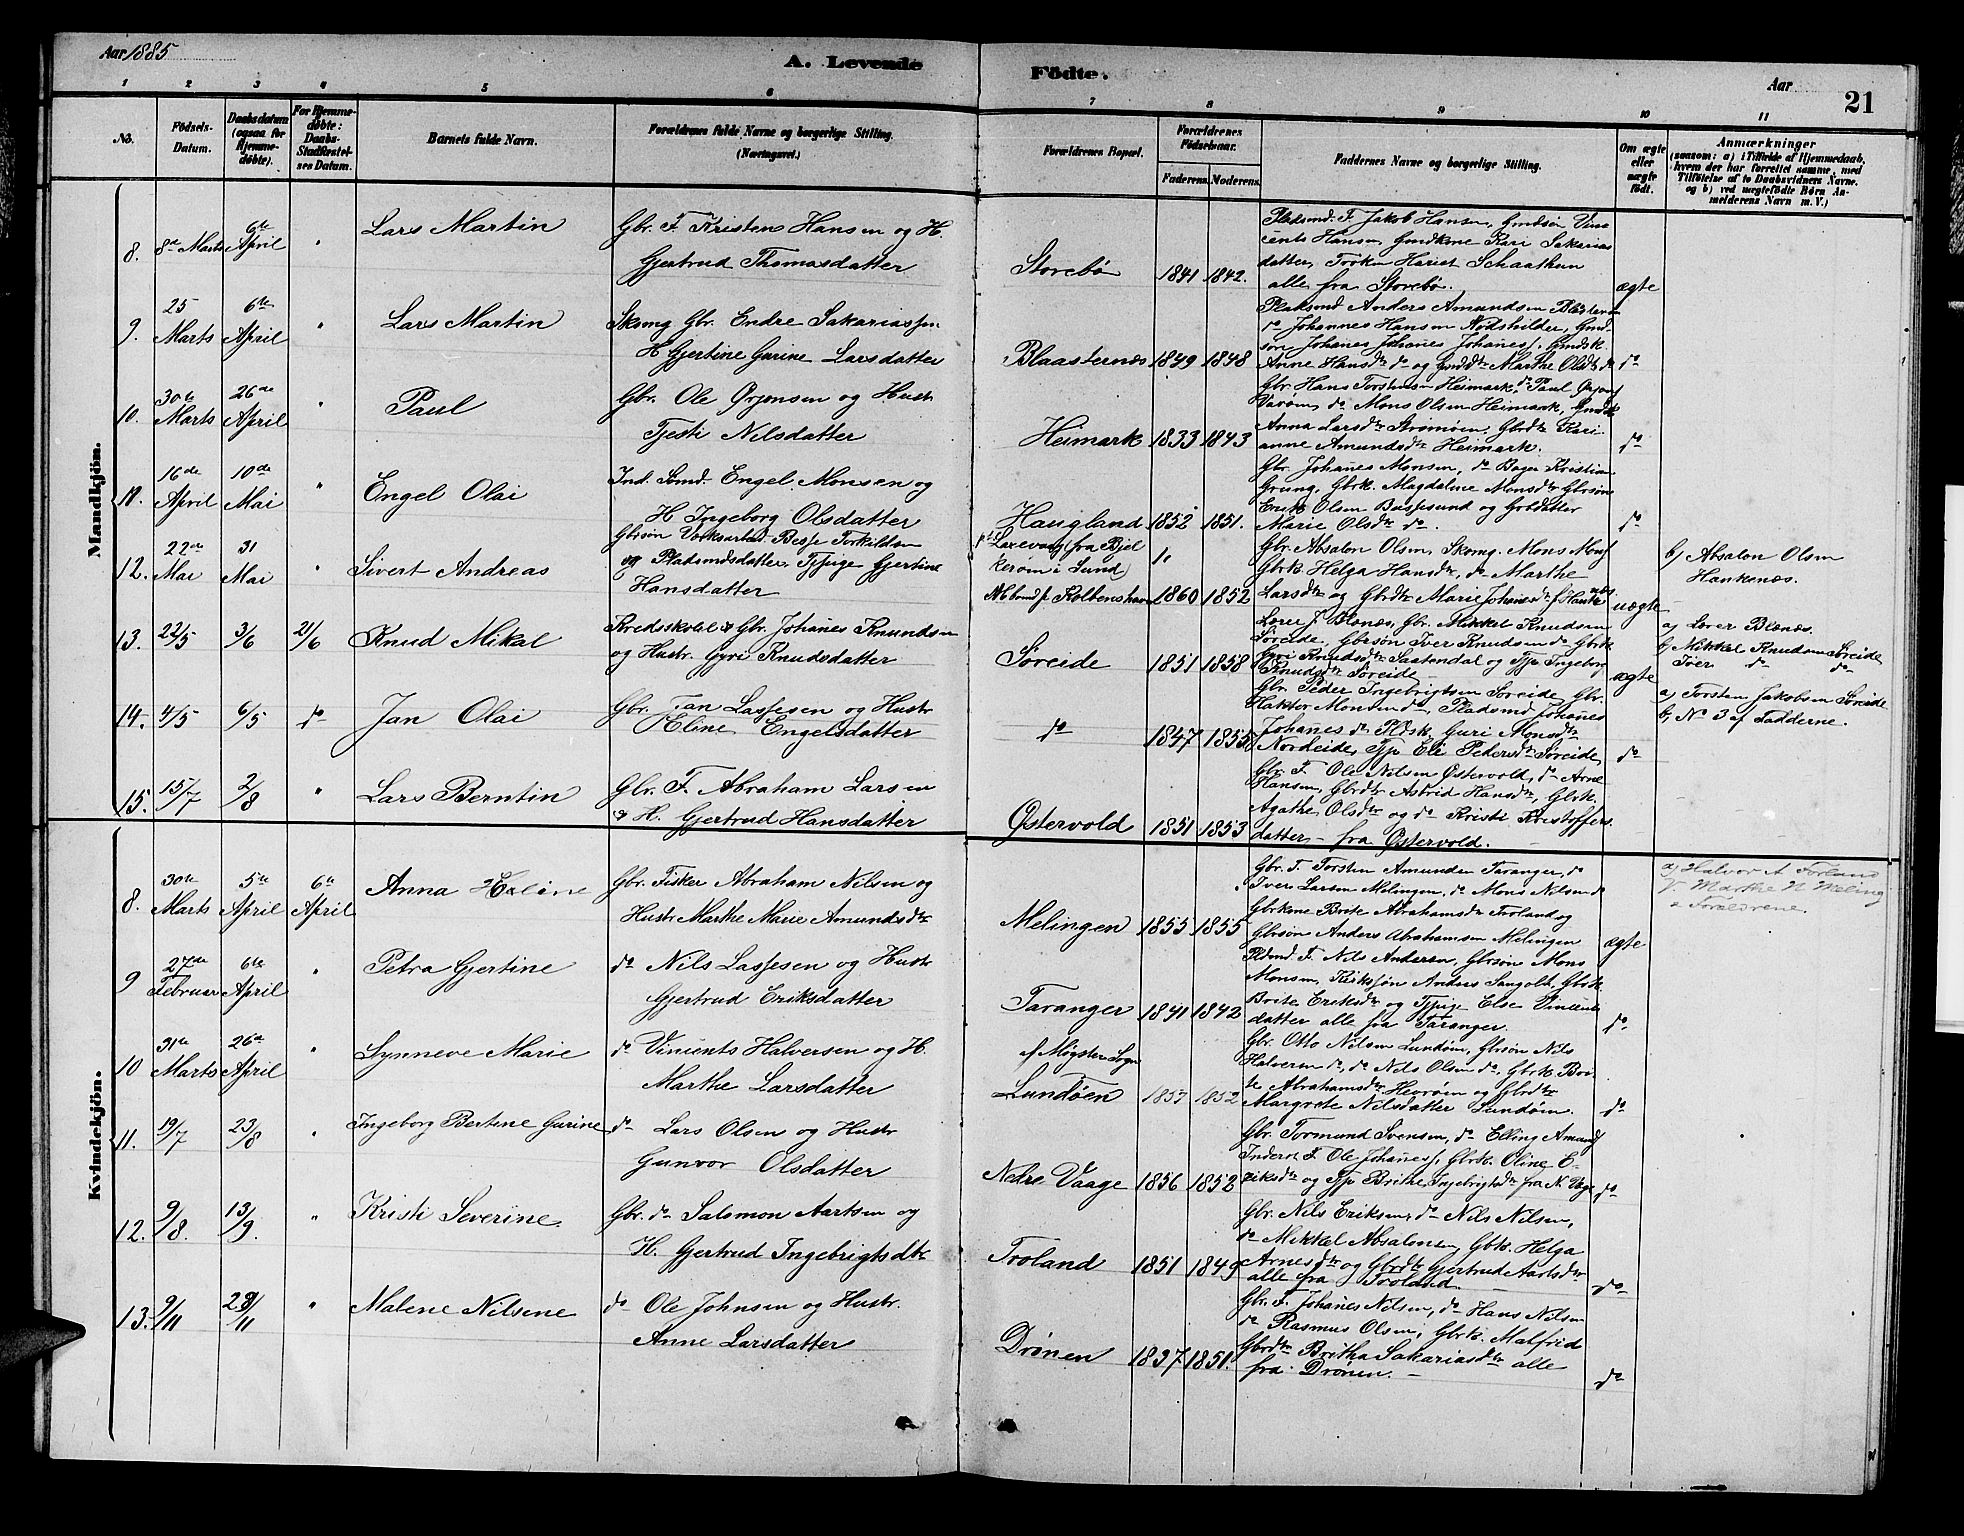 Aar 1885
A. Levende
Födte.
Aar
21
1 2 3 4 5 6 7 8 9 10 11
No.
Födsels-Datum.
Daabsdatum (ogsaa for Hjemme-döbte).
For Hjemme-døbte: Daabs-Stadfæstel-ses Datum.
Barnets fulde Navn.
Forældrenes fulde Navne og borgerlige Stilling.
(Næringsvei.)
Forældrenes Bopæl.
Forældrenes Födselsaar.
Faderens. Moderens.
Faddernes Navne og borgerlige Stilling.
Om ægte eller uægte födt.
Anmærkninger
(saasom: a) i Tilfælde af Hjemmedaab,
hvem der har forrettet samme, med
Tilföielse af to Daabsvidners Navne,
og b) ved uægtefödte Börn An-
melderens Navn m. V.)
Mandkjön.
8. 8de Marts 6te April " Lars Martin
Gbr. F. Kristen Hansen og H.
Gjertrud Thomasdatter
Storebø 1841 1842.
Pladsmd. F. Jakob Hansen, Gmdsøn Vin
cents Hansen, Gmdkone Kari Sakarias
datter, Frøken Hariet Schaathun
alle fra Storebø.
ægte
9. 25 Marts 6te April " Lars Martin
Skomg Gbr. Endre Sakariassen
H Gjertine Gurine Larsdatter
Blaasternæs 1849 1848
Pladsmd Anders Amundsen Blåsternæs
do Johannes Hansen Nødshilder, Gmd.
søn Johanes Johanes Johaness, Gmdsk.
Anne Hansdtr do og Gmddtr Marthe Olsdtr do
do
10. 30te Marts 26de April " Paul
Gbr. Ole Ørjansen og Hustr
Tjesti Nilsdatter
Heimark 1833 1843
Gbr. Hans Torstensen Heimark, do Paul Ørjans
Varøen, do Mons Olsen Heimark, Gmdsk
Anna Larsdtr Strømøen, Gbrdtr Kari
anne Amundsdtr Heimark.
do
11. 16de April 10de Mai " Engel Olai
Ind. Sømd. Engel Monsen og
H Ingeborg Olsdatter
Haugland 1852 1851.
Gbr. Johanes Monsen, do Bager Kristian
Grung, Gbrk. Magdalene Monsdtr Gbrsøn
Enok Olsen Bussesund og Gbrdatter
Marie Olsdtr do.
do
12. 22de Mai 31 Mai " Sivert Andreas
Gbrsøn Værksarbeid. Besse Torkildsen
og Pladsmdsdatter, Tjpige Gjertine
Hansdatter
Larevaag (fra Bjel
kerøen i Sund)
f. Kolbenshavn 1860 1852
Gbr. Absalon Olsen, Skomg. Mons Mons
Gbrk. Helga Hansdtr, do Marthe
Larsdtr og Gbrdtr Marie Johanesdtr f Hankenæs
uægte
b) Absalon Olsen
Hankenæs.
13. 22/5 3/6 21/6 Knud Mikal
Kredsskolel & Gbr. Johanes Knudsen
og Hustr. Gyri Knudsdatter
Søreide 1851 1858
Lærer J Blænæs, Gbr. Mikkel Knudsen
Søreide, Gbrsøn Iver Knudsen do Gbrk
Guri Knudsdtr Saatendal og Tjp Ingeborg
Knudsdtr Søreide
ægte
a) Lærer Blænæs.
b) Mikkel Knudsen Søreide
Iver do do
14. 4/5 6/5 do Jan Olai
Gbr. Jan Lassesen og Hustr
Eline Engelsdatter
do 1847 1855
Gbr. Peder Ingebrigtsen Søreide, Gbr.
Haktor Monsen do, Pladsmd Johanes
Johanes do Pldsk. Guri Monsdtr
Nordeide, Tjp Eli Pedersdtr Søreide
do
a) Torsten Jakobsen Søreide
b) No 3 af Fadderne.
15. 15/7 2/8 " Lars Berntin
Gbr. F. Abraham Larsen
& H. Gjertrud Hansdatter
Østervold 1851 1853
Gbr. F. Ole Nilsen Østervold, do Arne
Hansen, Gbrdtr Astrid Hansdtr, Gbrk.
Agathe Olsdtr og do Kristi Kristoffers
datter — fra Østervold.
Kvindekjön.
8. 30te Marts 5te April 6te April Anna Helene
Gbr. Fisker Abraham Nilsen og
Hustr Marthe Marie Amundsdtr
Melingen 1855 1855
Gbr. F. Torsten Amunden Taranger, do
Iver Larsen Melingen, do Mons Nilsen do
Gbrkone Brite Abrahamsdtr Troland og
Gbrsøn Anders Abrahamsen Melingen
ægte
a) Halvor A Forland
V Marthe N Meling
& Forældrene.
9 27de Februar 6te April " Petra Gjertine
do Nils Lassesen og Hustr
Gjertrud Eriksdatter
Taranger 1841 1842
Pldsmd. F. Nils Andersen, Gbrsøn Mons
Monsen, Kirkesjön Anders Sangolt, Gbrk.
Brite Eriksdtr og Tjpige Else Vincents
datter alle fra Taranger.
do
10 31te Marts 26de April " Synneve Marie
do Vincents Halversen og H.
Marthe Larsdatter
af Møgster Sogn
Lundøen 1857 1852
Gbr. Otto Nilsen Lundøen, Gbrsøn Nils
Halversen do, do Nils Olsen do, Gbrk. Bri-
te Abrahamsdtr Hevrøen og Gbrdtr
Margrete Nilsdatter Lundøen.
do
11. 19/7 23/8 " Ingeborg Bertine Gurine
do Lars Olsen og Hustr
Gunvor Olsdatter
Nedre Vaage 1856 1852
Gbr. Tormund Svensen, do Elling Amunds
Inderst F. Ole Johaness, Gbrk. Oline E-
riksdtr og Tjp Brithe Ingebrigtsdtr fra N. Vage
do
12. 9/8. 13/9. " Kristi Severine
Gbr. do Salomon Aartsen og
H. Gjertrud Ingebrigtsdtr
Troland 1851 1849
Gbr. Nils Eriksen, do Nils Nilsen,
do Mikkel Absalonsen, Gbrk. Helga
Arnesdtr og Gbrdtr Gjertrud Aartsdtr
alle fra Troland
do
13. 9/11 29/11 " Malene Nilsene
do Ole Johnsen og Hustr.
Anne Larsdatter
Drönen 1837 1851.
Gbr. F. Johanes Nilsen, do Hans Nilsen
do Rasmus Olsen, Gbrk. Malfrid
Gbrdtr Britha Sakariasdtr alle
fra Drönen. —
do